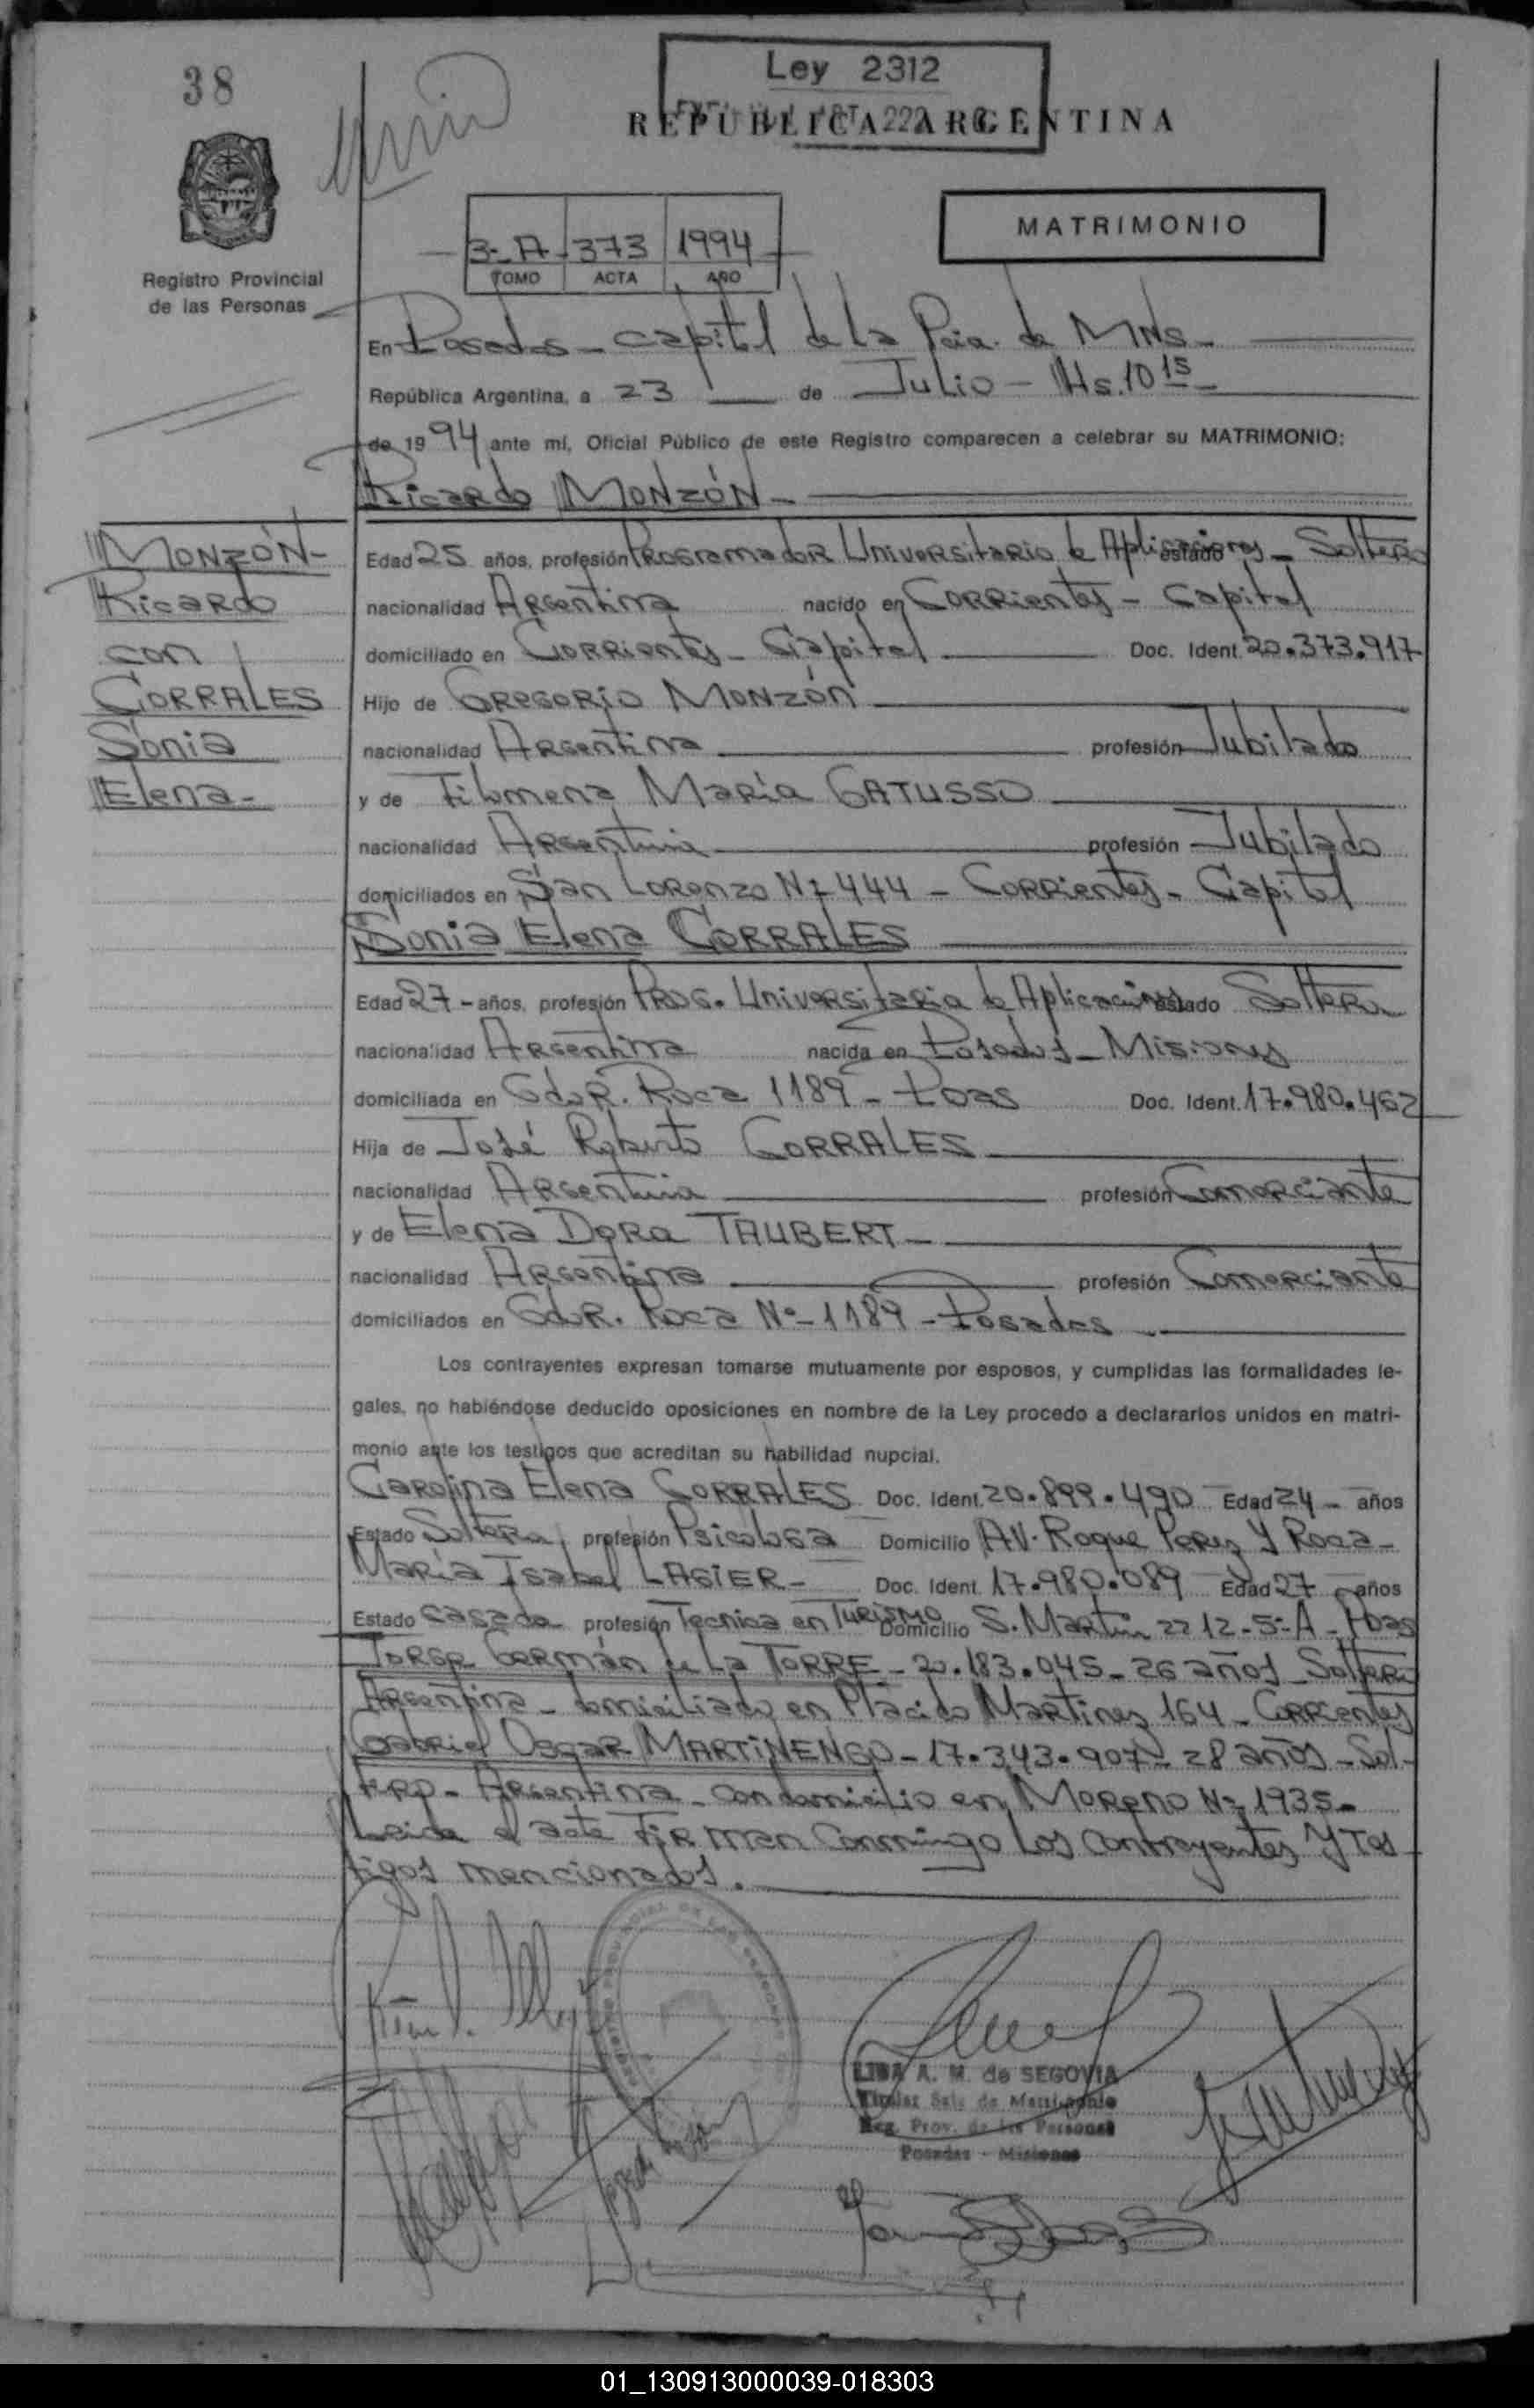 38
Ley 2312
REPUBLICA ARGENTINA
MATRIMONIO
3-A 373 1994
TOMO ACTA AÑO
Registro Provincial
de las Personas
En Posadas - Capital de la Pcia. de MNS -
República Argentina, a 23 de Julio - Hs. 10 15 -
de 1994 ante mí, Oficial Público de este Registro comparecen a celebrar su MATRIMONIO:
Ricardo MONZÓN -
MONZÓN -
Ricardo
con
CORRALES
Sonia
Elena -
Edad 25 años, profesión Programador Universitario de Aplicaciones - estado Soltero
nacionalidad Argentina nacido en Corrientes - Capital
domiciliado en Corrientes - Capital Doc. Ident. 20.373.917
Hijo de Gregorio MONZÓN
nacionalidad Argentina profesión Jubilado
y de Filomena María GATUSSO
nacionalidad Argentina profesión Jubilado
domiciliados en San Lorenzo Nº 444 - Corrientes - Capital
Sonia Elena CORRALES
Edad 27 - años, profesión Prog. Universitaria de Aplicaciones estado Soltera
nacionalidad Argentina nacida en Posadas - Misiones
domiciliada en Gdor. Roca 1189 - Pdas Doc. Ident. 17.980.462
Hija de José Roberto CORRALES
nacionalidad Argentina profesión Comerciante
y de Elena Dora TAUBERT -
nacionalidad Argentina profesión Comerciante
domiciliados en Gdor. Roca Nº - 1189 - Posadas
Los contrayentes expresan tomarse mutuamente por esposos, y cumplidas las formalidades le-
gales, no habiéndose deducido oposiciones en nombre de la Ley procedo a declararlos unidos en matri-
monio ante los testigos que acreditan su habilidad nupcial.
Carolina Elena CORRALES Doc. Ident. 20.899.490 Edad 24 - años
Estado Soltera profesión Psicologa Domicilio AV. Roque Perez Y Roca -
María Isabel LAGIER - Doc. Ident. 17.980.089 Edad 27 años
Estado Casada profesión Tecnica en Turismo Domicilio S. Martin 2212 - 5º A - Pdas
Jorge Germán de La TORRE - 20.183.045 - 26 años - Soltero
Argentina - domiciliado en Placido Martinez 164 - Corrientes
Gabriel Oscar MARTINENGO - 17.343.907 - 28 años - Sol-
tero - Argentina - con domicilio en Moreno Nº 1935 -
Leida el acta Firman Conmingo Los contrayentes y Tes
tigos mencionados.
LIDA A. M. de SEGOVIA
Titular Sala de Matrimonio
Reg. Prov. de las Personas
Posadas - Misiones
01_130913000039-018303